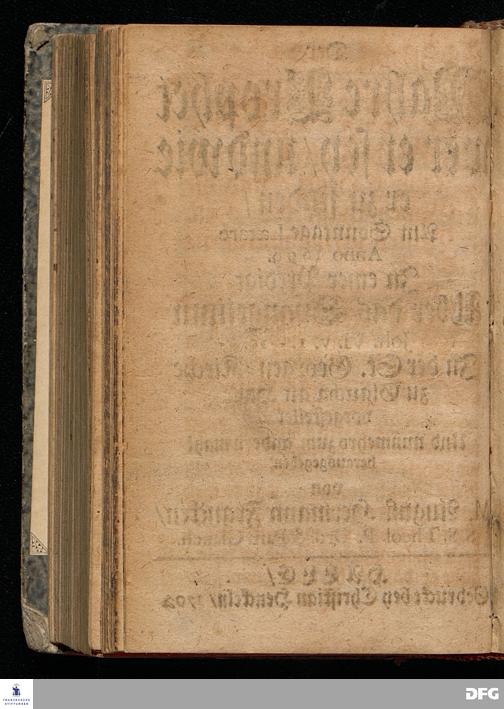 Der
Wahre Prophet
wer er sey / und wie
er zu finden /
Am Sonntage Laetare
Anno 1699.
In einer Predigt
Uber das Evangelium
Joh. VI. v. 1.
In der St. Georgen Kirche
zu Glaucha an Halle
vorgestellet
Und nunmehro zum andern mahl
herausgegeben
von
M. August Hermann Francken /
S. Theol. P.
HALLE /
Gedruckt bey Christian Henckeln / 1702
FRANCKESCHE
STIFTUNGEN
DFG